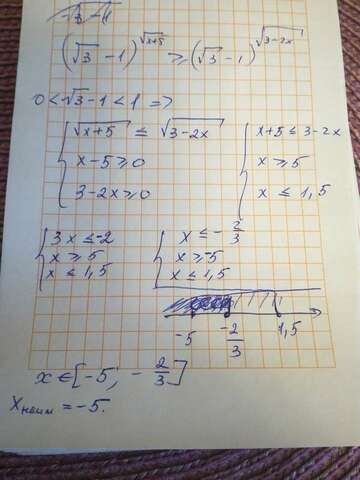 (√3 - 1)^√(x+5) ≥ (√3 - 1)^√(3-2x)
0 < √3 - 1 < 1 =>
{ √(x+5) ≤ √(3-2x)
x - 5 ≥ 0
3 - 2x ≥ 0
{ x + 5 ≤ 3 - 2x
x ≥ 5
x ≤ 1,5
{ 3x ≤ -2
x ≥ 5
x ≤ 1,5
{ x ≤ - 2/3
x ≥ -5
x ≤ 1,5
-5 -2/3 1,5
x ∈ [-5; - 2/3]
x наим = -5.